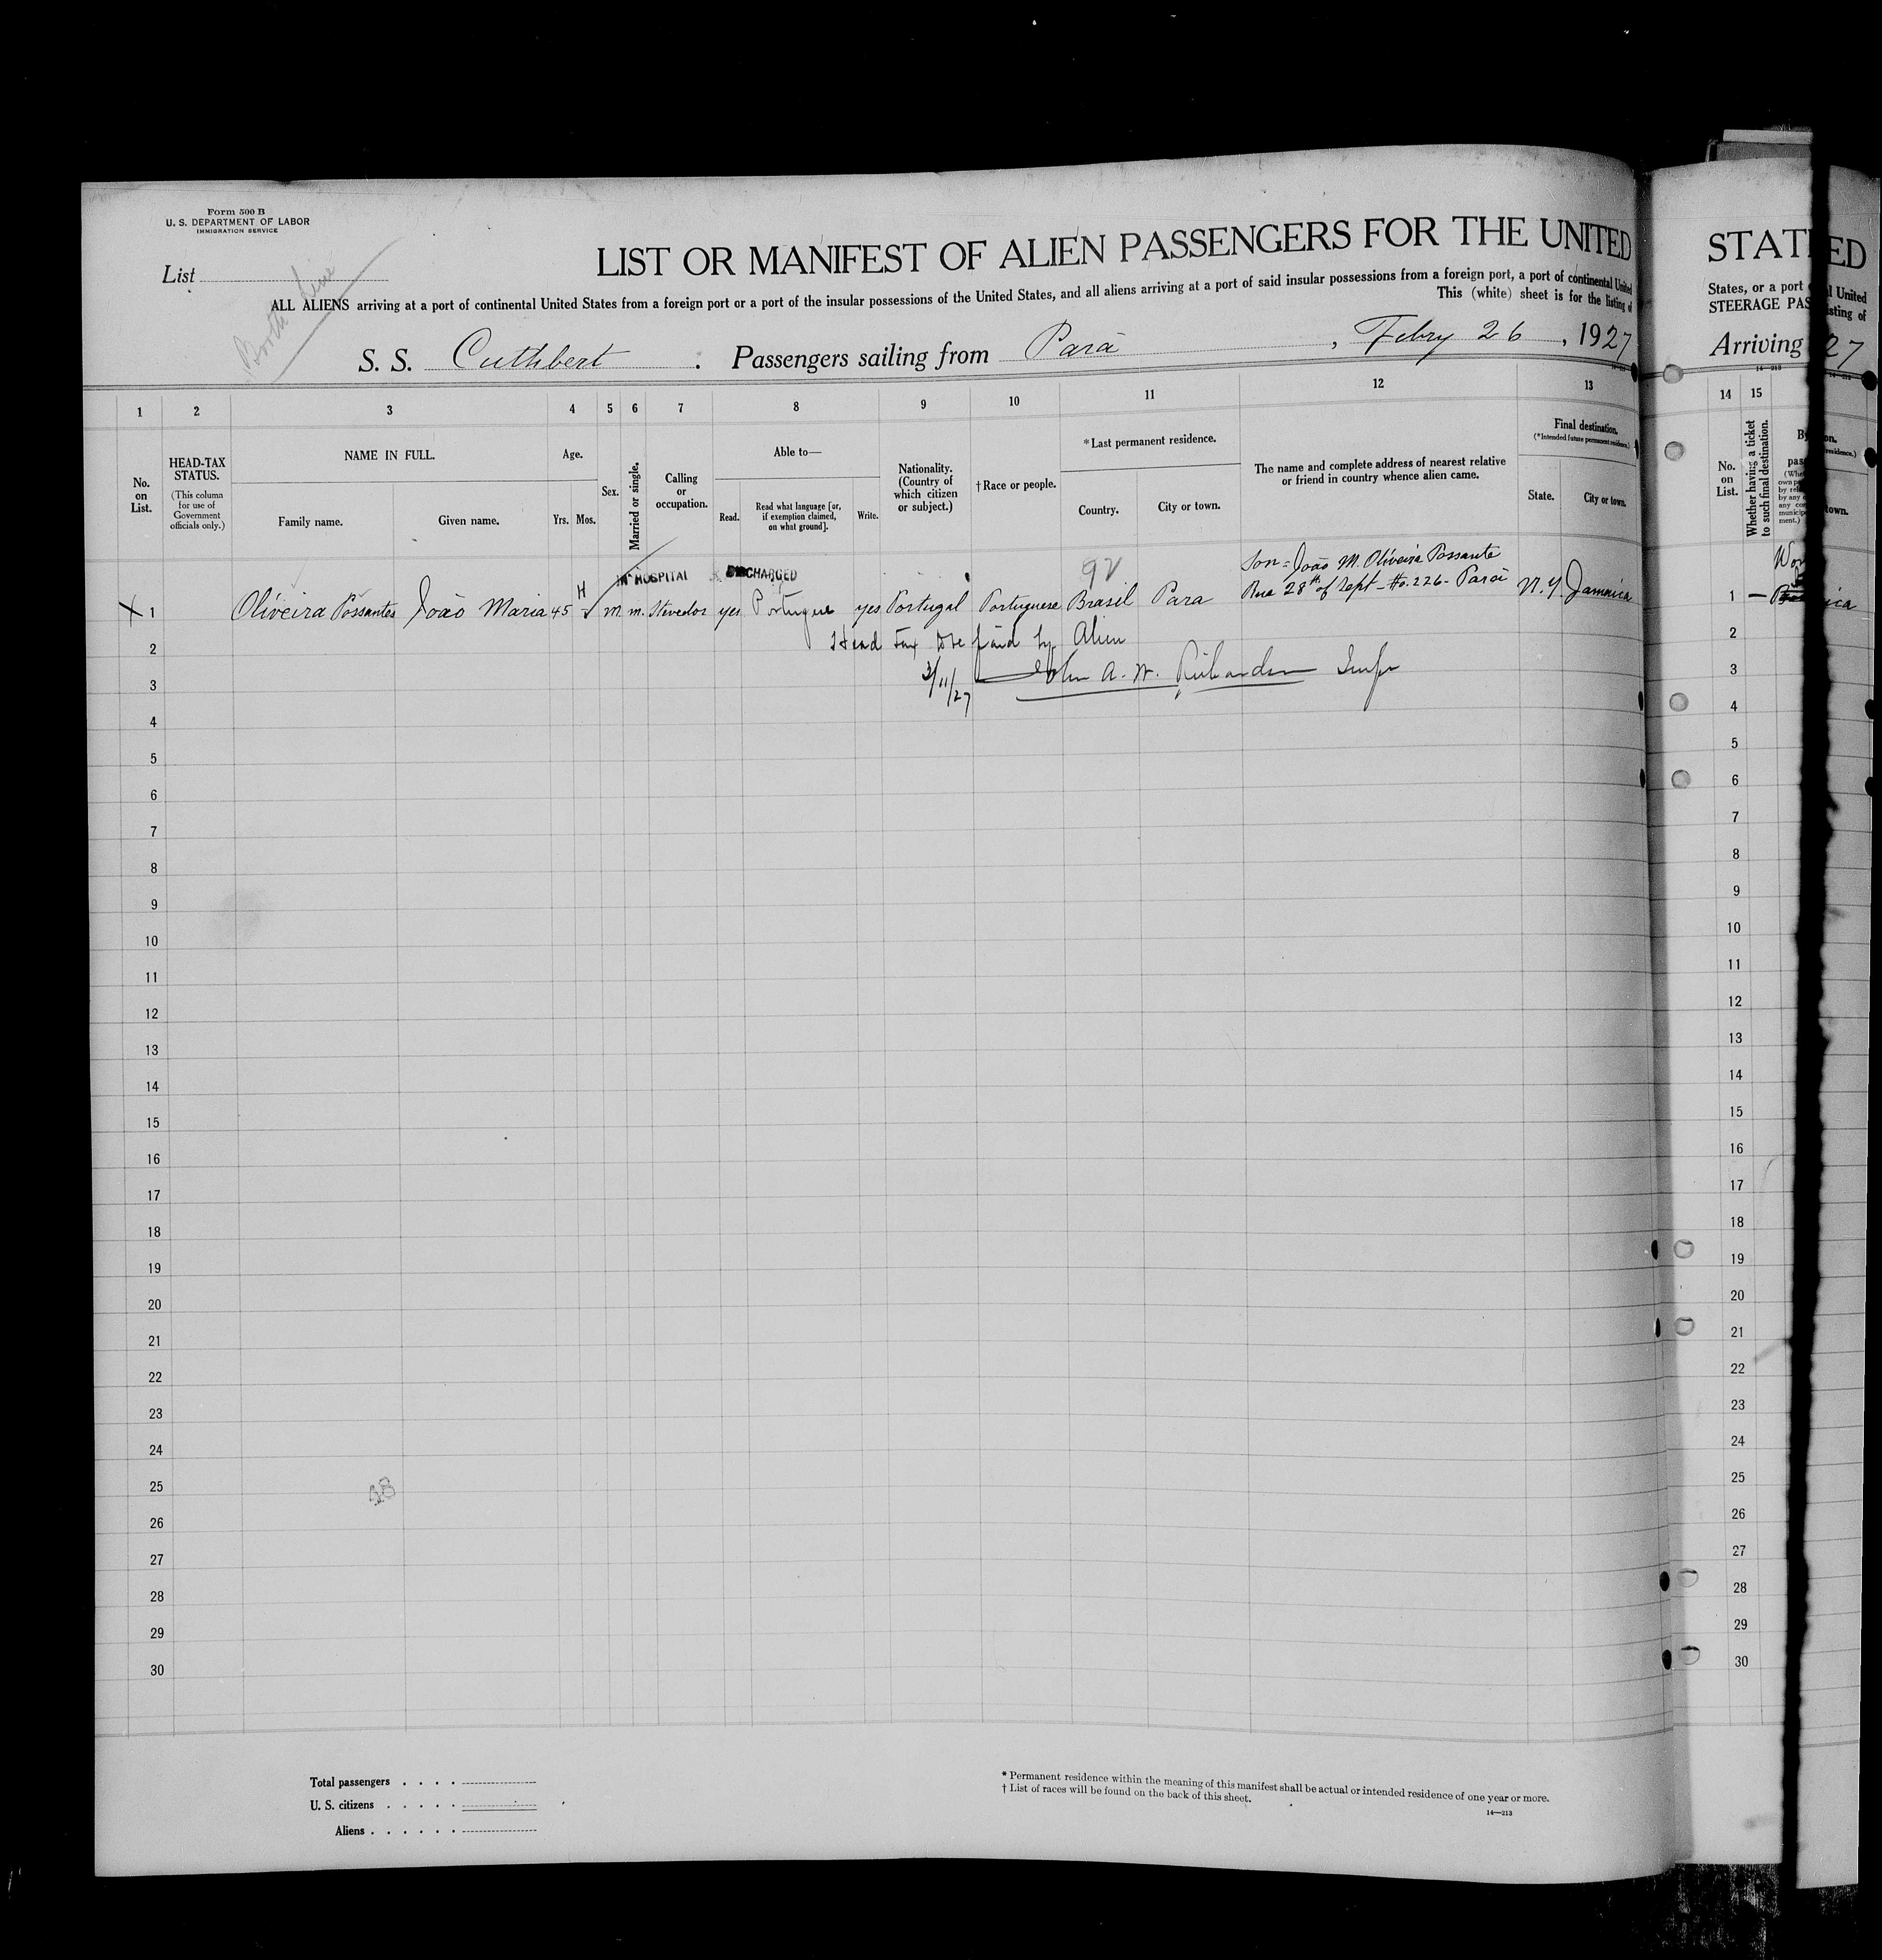 Form 500 B
U. S. DEPARTMENT OF LABOR
IMMIGRATION SERVICE
List
Booth Line
LIST OR MANIFEST OF ALIEN PASSENGERS FOR THE UNITED
ALL ALIENS arriving at a port of continental United States from a foreign port or a port of the insular possessions of the United States, and all aliens arriving at a port of said insular possessions from a foreign port, a port of continental United
This (white) sheet is for the listing of
S. S. Cuthbert . Passengers sailing from Pará , Febry 26 , 1927
1 2 3 4 5 6 7 8 9 10 11 12 13
No. on List.
HEAD-TAX STATUS.
(This column for use of Government officials only.)
NAME IN FULL.
Family name. Given name.
Age.
Yrs. Mos.
Sex.
Married or single.
Calling or occupation.
Able to—
Read. Read what language [or, if exemption claimed, on what ground]. Write.
Nationality. (Country of which citizen or subject.)
†Race or people.
*Last permanent residence.
Country. City or town.
The name and complete address of nearest relative or friend in country whence alien came.
Final destination.
(*Intended future permanent residence.)
State. City or town.
IN HOSPITAL DISCHARGED
Son = João M. Oliveira Possante
Rua 28th of Sept - No. 226 - Pará
X 1 Oliveira Possantes João Maria 45 H m. m. Stevedor yes Portugue yes Portugal Portuguese Brasil Para N.Y. Jamaica
2 Head Tax to be paid by Alien
3 3/11/27 John A. W. Richardson Insp
4
5
6
7
8
9
10
11
12
13
14
15
16
17
18
19
20
21
22
23
24
25
26
27
28
29
30
Total passengers . . . .
U. S. citizens . . . . .
Aliens . . . . . .
* Permanent residence within the meaning of this manifest shall be actual or intended residence of one year or more.
† List of races will be found on the back of this sheet.
14—213
STAT
ED
States, or a port
STEERAGE PAS
Arriving
27
14 15
No. on List.
Whether having a ticket to such final destination.
1 —
2
3
4
5
6
7
8
9
10
11
12
13
14
15
16
17
18
19
20
21
22
23
24
25
26
27
28
29
30